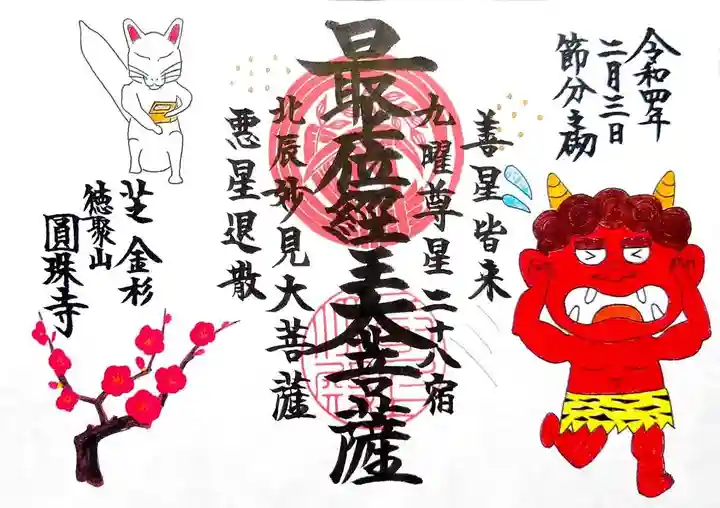 令和四年
二月三日
節分会砌
善星皆来
九曜尊星二十八宿
最上位經王大菩薩
北辰妙見大菩薩
悪星退散
芝金杉
徳聚山
圓珠寺